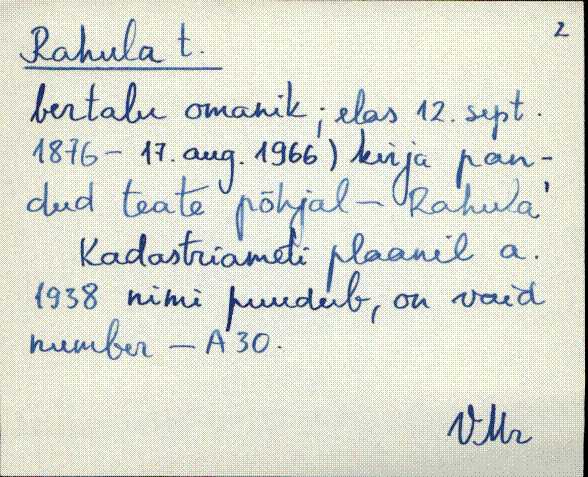 2
Rahula t.
bertalu omanik; elas 12. sept.
1876 - 17. aug. 1966) kirja pan-
dud teate põhjal - Rahula'
Kadastriameti plaanil a.
1938 nimi puudub, on vaid
number - A 30.
VMr